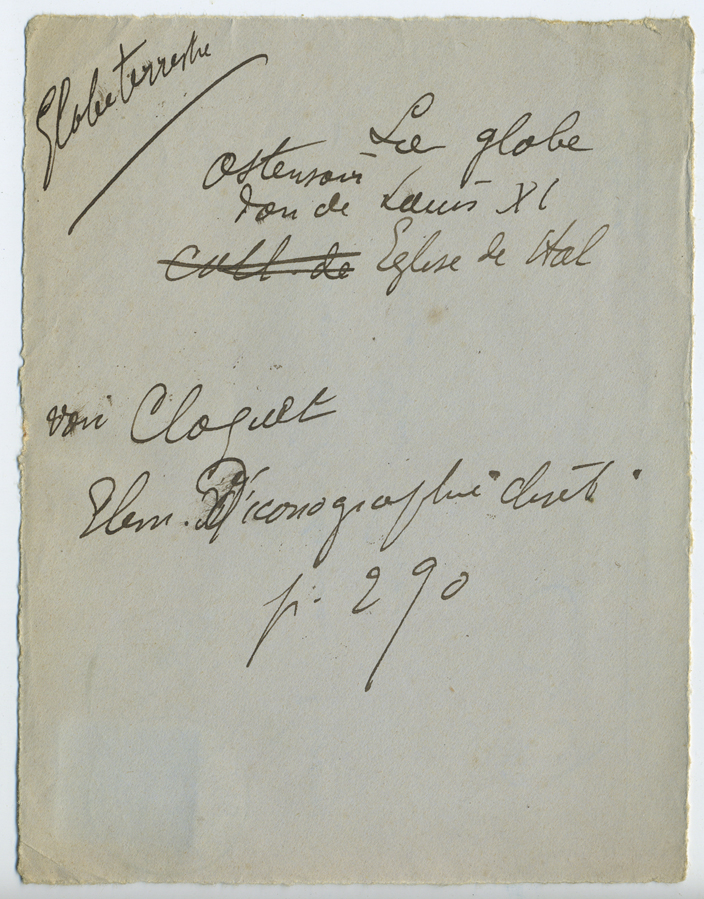 Globe terrestre
Le globe
Ostensoir
don de Louis XI
Coll. de Eglise de Hal
voir Cloquet
Elem. D'iconographie chrét.
p. 290